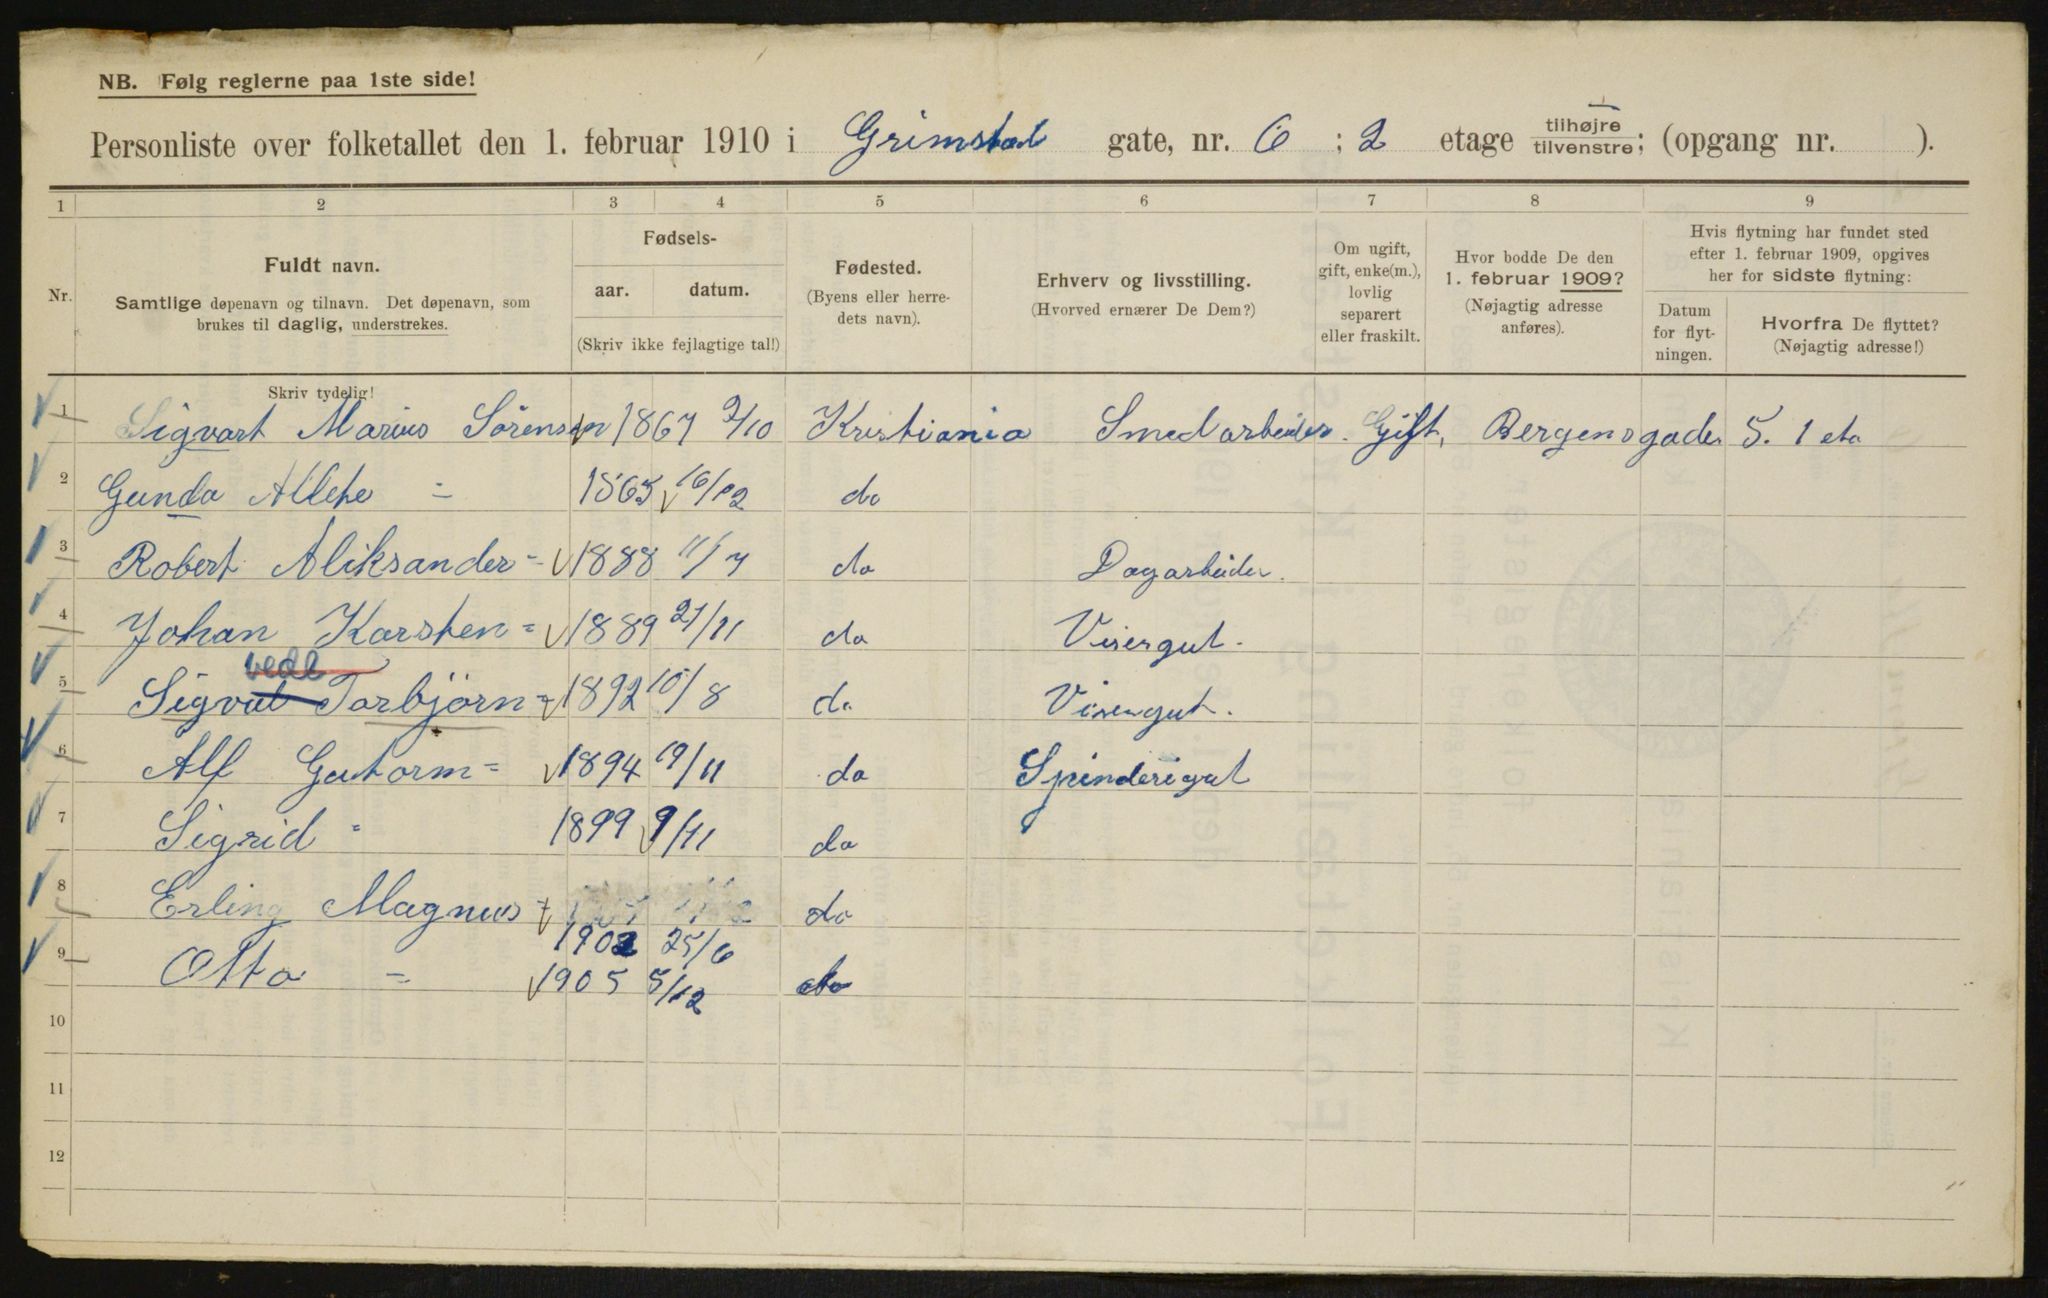 NB. Følg reglerne paa 1ste side!
Personliste over folketallet den 1. februar 1910 i Grimstad gate, nr. 6 ; 2 etage tilhøjre tilvenstre; (opgang nr. ).
1 2 3 4 5 6 7 8 9
Nr.
Fuldt navn.
Samtlige døpenavn og tilnavn. Det døpenavn, som
brukes til daglig, understrekes.
Fødsels-
aar. datum.
(Skriv ikke fejlagtige tal!)
Fødested.
(Byens eller herre-
dets navn).
Erhverv og livsstilling.
(Hvorved ernærer De Dem?)
Om ugift,
gift, enke(m.),
lovlig
separert
eller fraskilt.
Hvor bodde De den
1. februar 1909?
(Nøjagtig adresse
anføres).
Hvis flytning har fundet sted
efter 1. februar 1909, opgives
her for sidste flytning:
Datum
for flyt-
ningen.
Hvorfra De flyttet?
(Nøjagtig adresse!)
Skriv tydelig!
1 Sigvart Marius Sörensen 1867 2/10 Kristiania Smedarbeider. Gift, Bergensgade 5. 1 eta
2 Gunda = 1865 16/12 do
3 Robert Aliksander = 1888 11/7 do Dagarbeider.
4 Johan Karsten = 1889 21/11 do Visergut.
vedl
5 Sigvat Torbjörn = 1892 10/8 do Visergut.
6 Alf Gutorm = 1894 19/11 do Spinderigut
7 Sigrid " 1899 9/11 do
8 Erling Magnus = do
1902 25/6
9 Otto = 1905 5/12 do
10
11
12